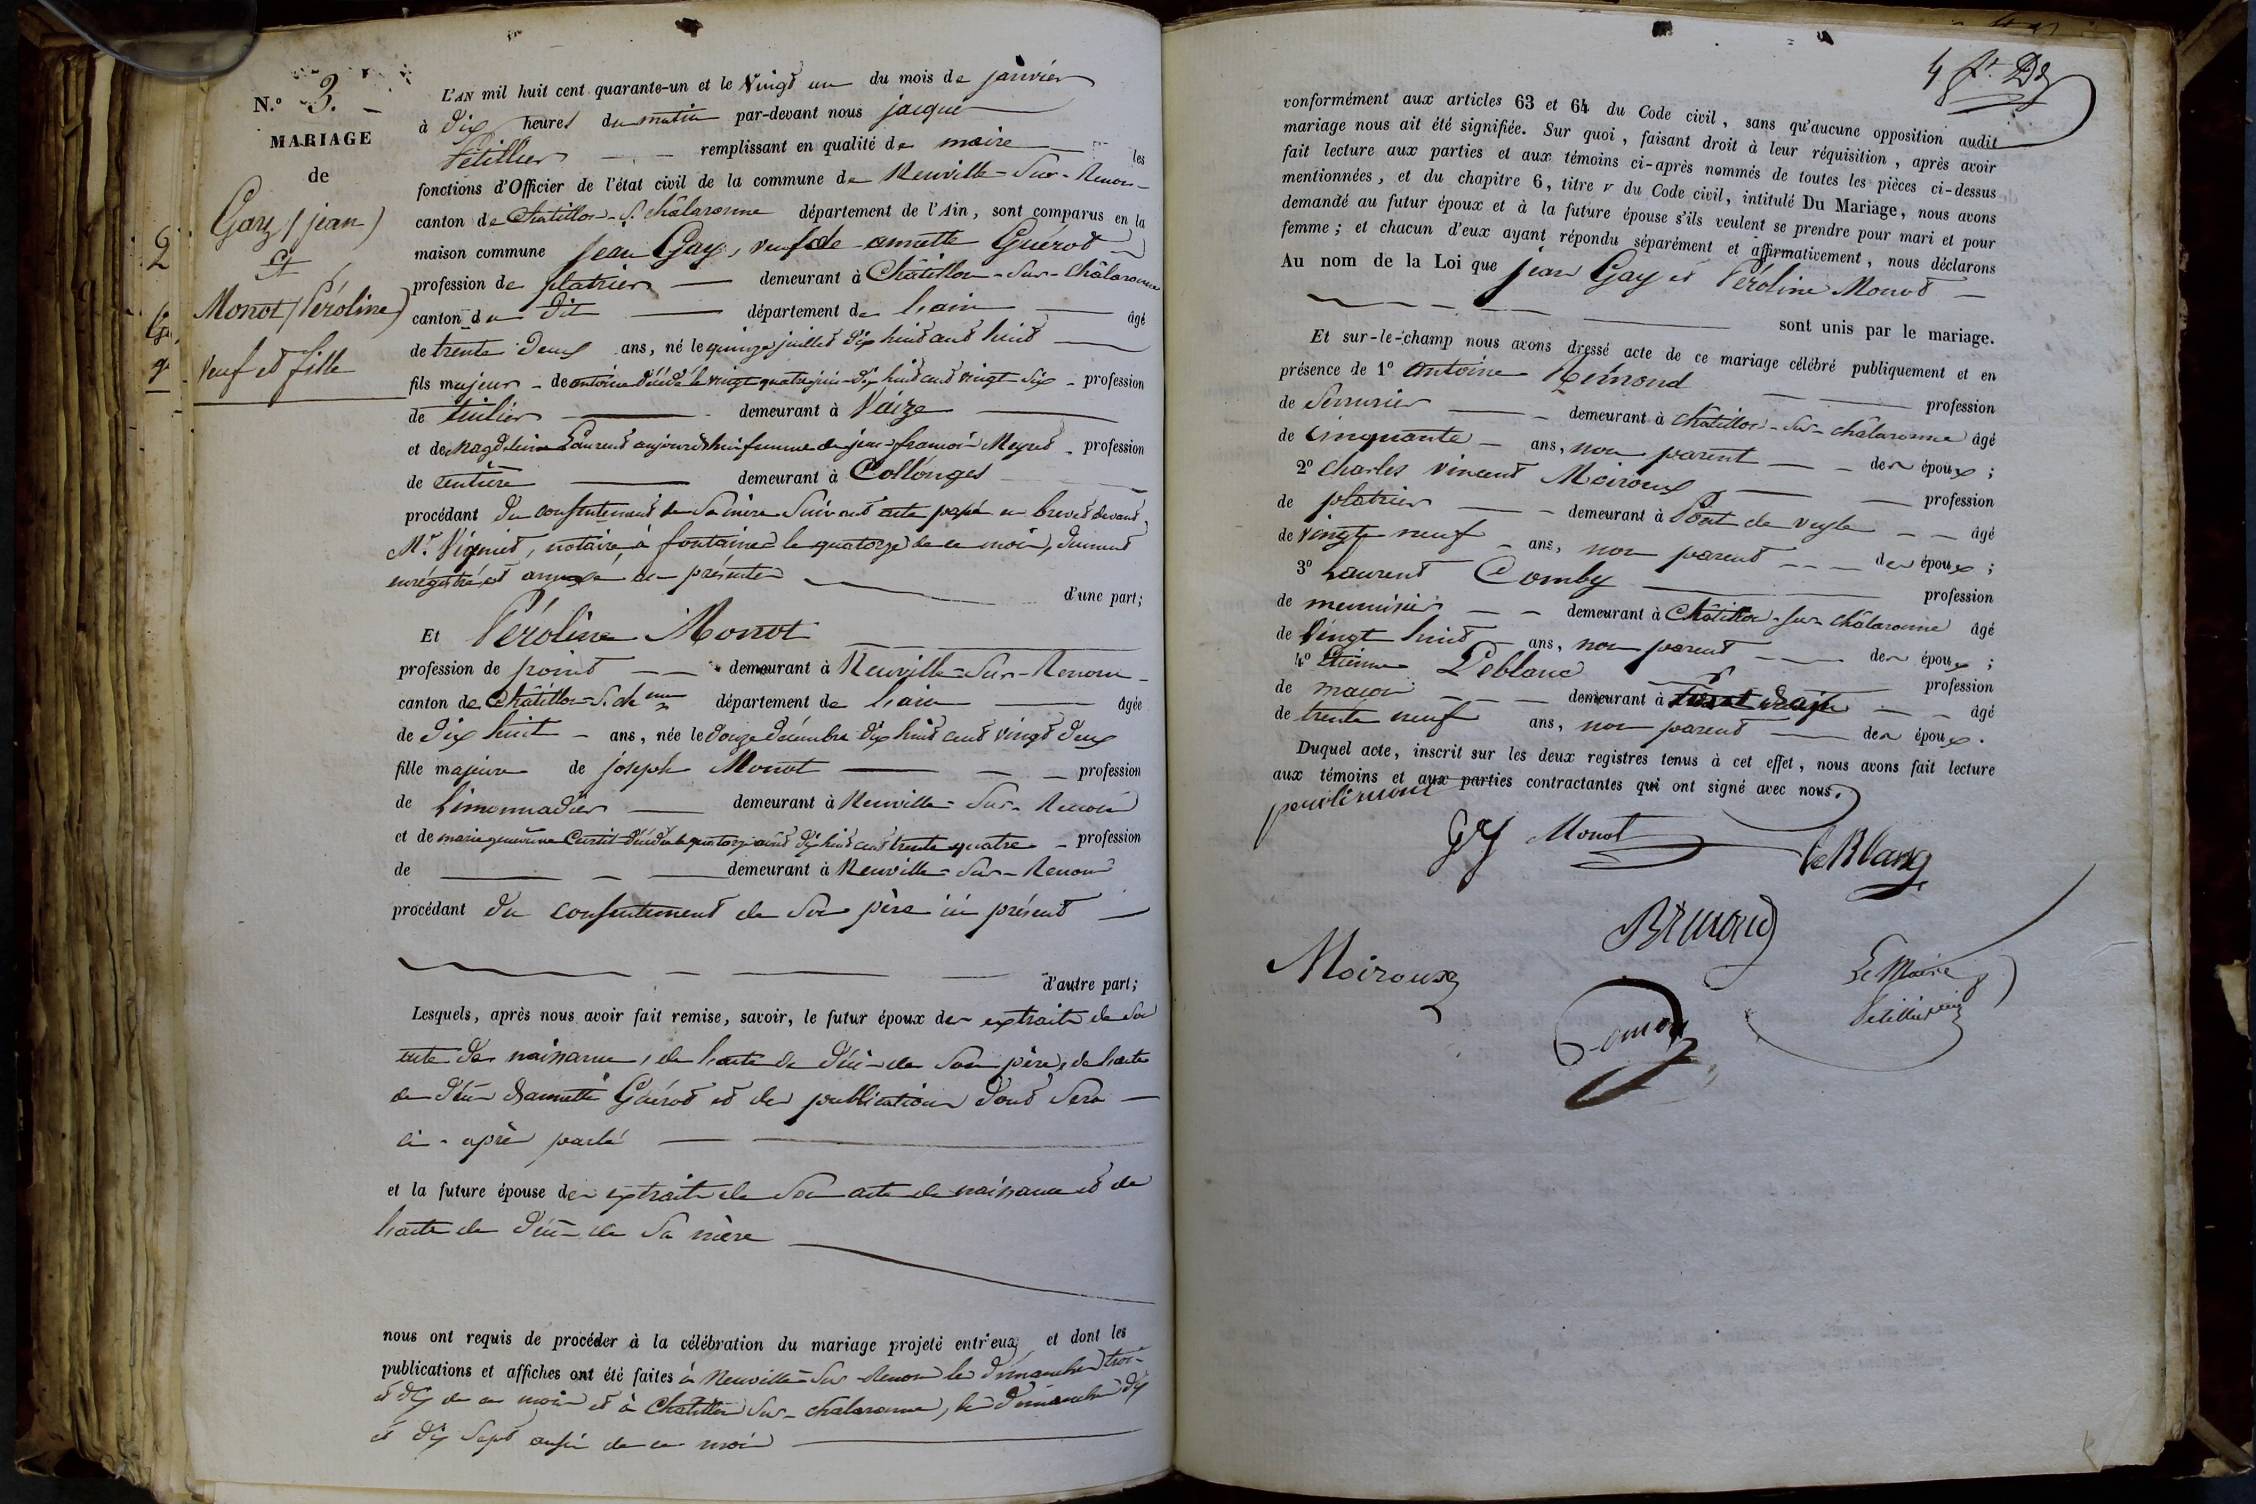 N.° 3.
MARIAGE
de
Gay (jean)
Et
Monot (Péroline)
veuf et fille
L'AN mil huit cent quarante-un et le vingt un du mois de janvier
à dix heures du matin par-devant nous jacque
Pétillier remplissant en qualité de maire les
fonctions d'Officier de l'état civil de la commune de Neuville-sur-Renon
canton de Chatillon-s. châlaronne département de l'Ain, sont comparus en la
maison commune jean Gay, veuf de annette Guérot
profession de platrier demeurant à Châtillon-sur-châlaronne
canton du dit département de lain âgé
de trente deux ans, né le quinze juillet dix huit cent huit
fils majeur de antoine décédé le vingt quatre juin dix huit cent vingt six profession
de tuilier demeurant à Vaize
et de Magdeleine Laurent aujourd'hui femme de jean françois Meyret profession
de demeurant à Collonges
procédant du consentement de sa mère suivant acte passé en brevet devant
Mr. Vigniet, notaire à fontaines le quatorze de ce mois, dument
enrégistré et annexé au présentes d'une part;
Et Péroline Monot
profession de point demeurant à Neuville-sur-Renom
canton de Châtillon-s. ch nne département de lain âgée
de dix huit ans, née le douze décembre dix huit cent vingt deux
fille majeure de joseph Monot profession
de Limonnadier demeurant à Neuville-sur-Renon
et de marie geneviève Curtit décédée le quatorze août dix huit cent trente quatre profession
de demeurant à Neuville-sur-Renon
procédant du consentement de son père ici présent
d'autre part;
Lesquels, après nous avoir fait remise, savoir, le futur époux des extraits de son
acte de naissance, de lacte de décès de son père, de lacte
de décès dannette Guérot et des publications dont sera
ci-après parlé
et la future épouse des extraits de son acte de naissance et de
lacte de décès de sa mère
nous ont requis de procéder à la célébration du mariage projeté entr'eux, et dont les
publications et affiches ont été faites à Neuville-sur-Renon les dimanches trois
et dix de ce mois et à Chatillon sur-chalaronne, les dimanches dix
et dix sept aussi de ce mois
4 ft.
conformément aux articles 63 et 64 du Code civil, sans qu'aucune opposition audit
mariage nous ait été signifiée. Sur quoi, faisant droit à leur réquisition, après avoir
fait lecture aux parties et aux témoins ci-après nommés de toutes les pièces ci-dessus
mentionnées, et du chapitre 6, titre v du Code civil, intitulé Du Mariage, nous avons
demandé au futur époux et à la future épouse s'ils veulent se prendre pour mari et pour
femme; et chacun d'eux ayant répondu séparément et affirmativement, nous déclarons
Au nom de la Loi que jean Gay et Péroline Monot
sont unis par le mariage.
Et sur-le-champ nous avons dressé acte de ce mariage célébré publiquement et en
présence de 1° antoine Rémond profession
de Serrurier demeurant à châtillon-sur-châlaronne âgé
de cinquante ans, non parent des époux;
2° charles vincent Moiroux profession
de platrier demeurant à Pont de veyle âgé
de vingt neuf ans, non parent des époux;
3° Laurent Comby profession
de menuisier demeurant à Châtillon-sur-châlaronne âgé
de vingt huit ans, non parent des époux;
4° Etienne Leblanc profession
de maçon demeurant à âgé
de trente neuf ans, non parent des époux.
Duquel acte, inscrit sur les deux registres tenus à cet effet, nous avons fait lecture
aux témoins et aux parties contractantes qui ont signé avec nous.
Gay Monot leBlanc
Moiroux
Le Maire
Pétillier